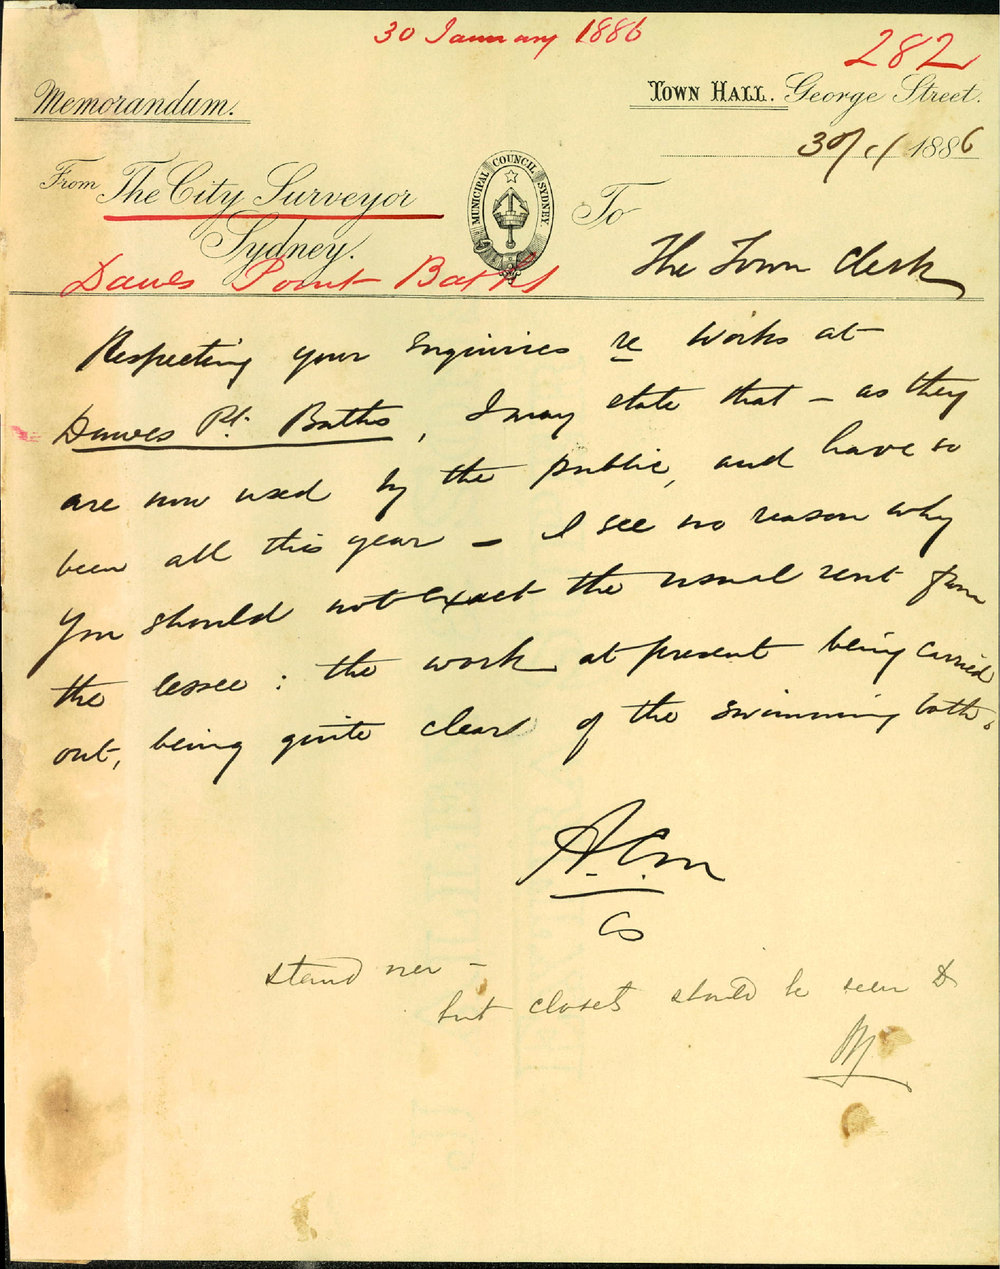 30 January 1886
282
Memorandum.
Town Hall. George Street.
30/1/1886
From The City Surveyor
Sydney.
MUNICIPAL COUNCIL SYDNEY.
To
The Town Clerk
Dawes Point Baths
Respecting your enquiries re works at
Dawes Pt. Baths, I may state that – as they
are now used by the public, and have so
been all this year – I see no reason why
you should not exact the usual rent from
the lessee: the work at present being carried
out, being quite clear of the swimming baths.
CS
stand over –
but closets should be seen to